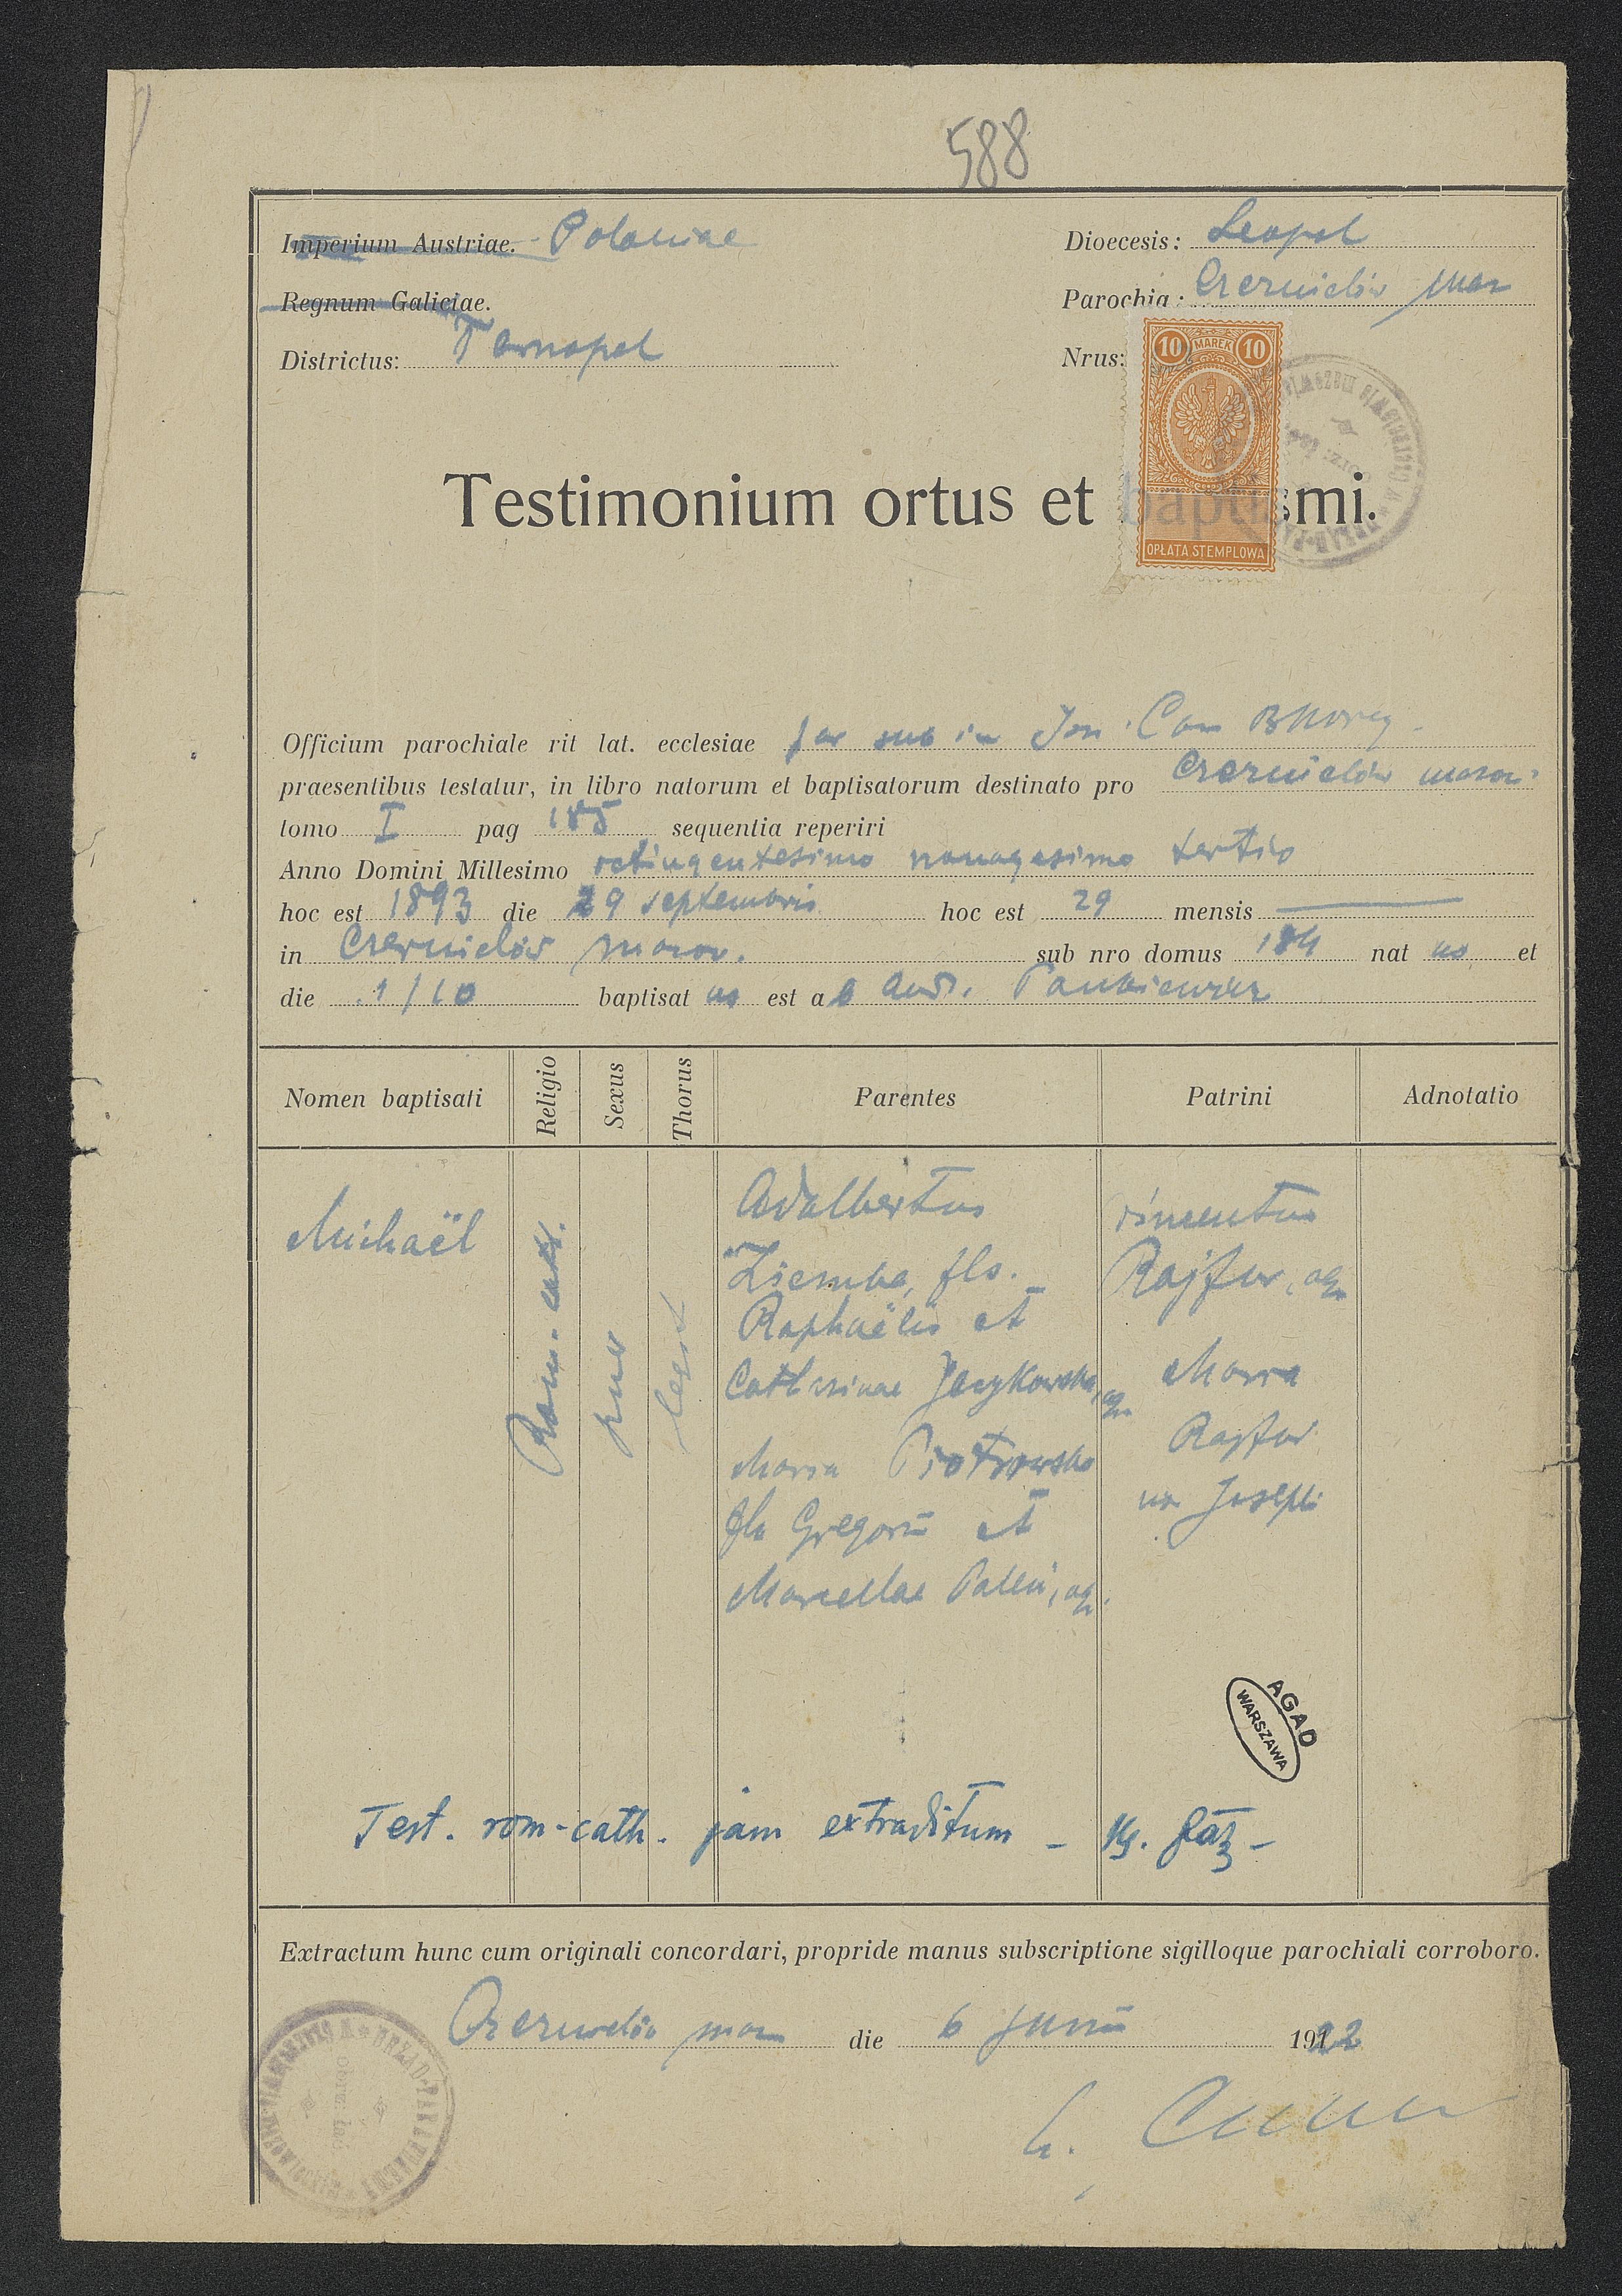 588
Imperium Austriae. Poloniae
Dioecesis: Leopol
Regnum Galiciae.
Parochia: Czernielów maz
Districtus: Tarnopol
Nrus:
10 MAREK 10
OPŁATA STEMPLOWA
Testimonium ortus et baptismi.
Officium parochiale rit lat. ecclesiae
praesentibus testatur, in libro natorum et baptisatorum destinato pro Czernielów mazow.
tomo I pag 185 sequentia reperiri
Anno Domini Millesimo octingentesimo nonagesimo tertio
hoc est 1893 die 29 septembris hoc est 29 mensis
in Czernielów mazow. sub nro domus 184 nat us et
die 1/10 baptisat us est ab And. Pankiewicz
Nomen baptisati Religio Sexus Thorus Parentes Patrini Adnotatio
Michaël
Rom. cath.
legit
Adalbertus
Ziemba, fls.
Raphaëlis et
Catharinae Jaczkowska, agr.
Maria Piotrowska
fla Gregorii et
Marcellae Pallii, agr.
Vincentius
Rajfur, agr
Maria
Rajfur
ux Josephi
AGAD
WARSZAWA
Test. rom-cath. jam extraditum -
Extractum hunc cum originali concordari, propride manus subscriptione sigilloque parochiali corroboro.
Czernielów maz die 6 Junii 1922